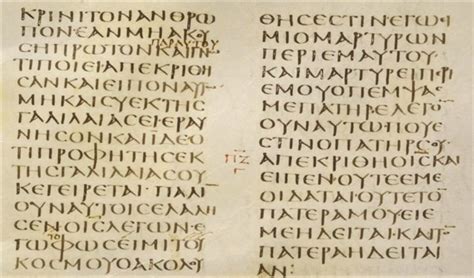 ΚΡΙΝΙΤΟΝΑΝΘΡΩ
ΠΟΝΕΑΝΜΗΑΚΟΥ
ΠΑΡΑΥΤΟΥ
ϹΗΠΡΩΤΟΝ
ΤΙΠΟΙΕΙΑΠΕΚΡΙΘΗ
ϹΑΝΚΑΙΕΙΠΟΝΑΥΤΩ
ΜΗΚΑΙϹΥΕΚΤΗϹ
ΓΑΛΙΛΑΙΑϹΕΙΕΡΑΥ
ΝΗϹΟΝΚΑΙΪΔΕΟ
ΤΙΠΡΟΦΗΤΗϹΕΚ
ΤΗϹΓΑΛΙΛΑΙΑϹΟΥ
ΚΕΓΕΙΡΕΤΑΙ·ΠΑΛΙ
ΟΥΝΑΥΤΟΙϹΕΛΑΛΗ
ϹΕΝΟΙϹΛΕΓΩΝΕ
ΤΟ
ΓΩΦΩϹΕΙΜΙΤΟΥ
ΚΟϹΜΟΥΟΑΚΟΛΟΥ
ΘΗϹΕϹΤΙΝΕΓΩΕΙ
ΜΙΟΜΑΡΤΥΡΩΝ
ΠΕΡΙΕΜΑΥΤΟΥ
ΚΑΙΜΑΡΤΥΡΕΙΠΕΡΙ
ΕΜΟΥΟΠΕΜΨΑϹ
ΜΕΠΑΤΗΡΕΛΕΓΟ
ΟΥΝΑΥΤΩΠΟΥΕ
ϹΤΙΝΟΠΑΤΗΡϹΟΥ
ΠΖ
Γ
ΑΠΕΚΡΙΘΗΟΙϹΚΑΙ
ΕΙΠΕΝΟΥΤΕΕΜΕ
ΟΙΔΑΤΑΙΟΥΤΕΤΟ
ΠΑΤΕΡΑΜΟΥΕΙΕ
ΜΕΗΔΕΙΤΑΙ·ΚΑΙΤΟ
ΠΑΤΕΡΑΗΔΕΙΤΑΙ
ΑΝ·